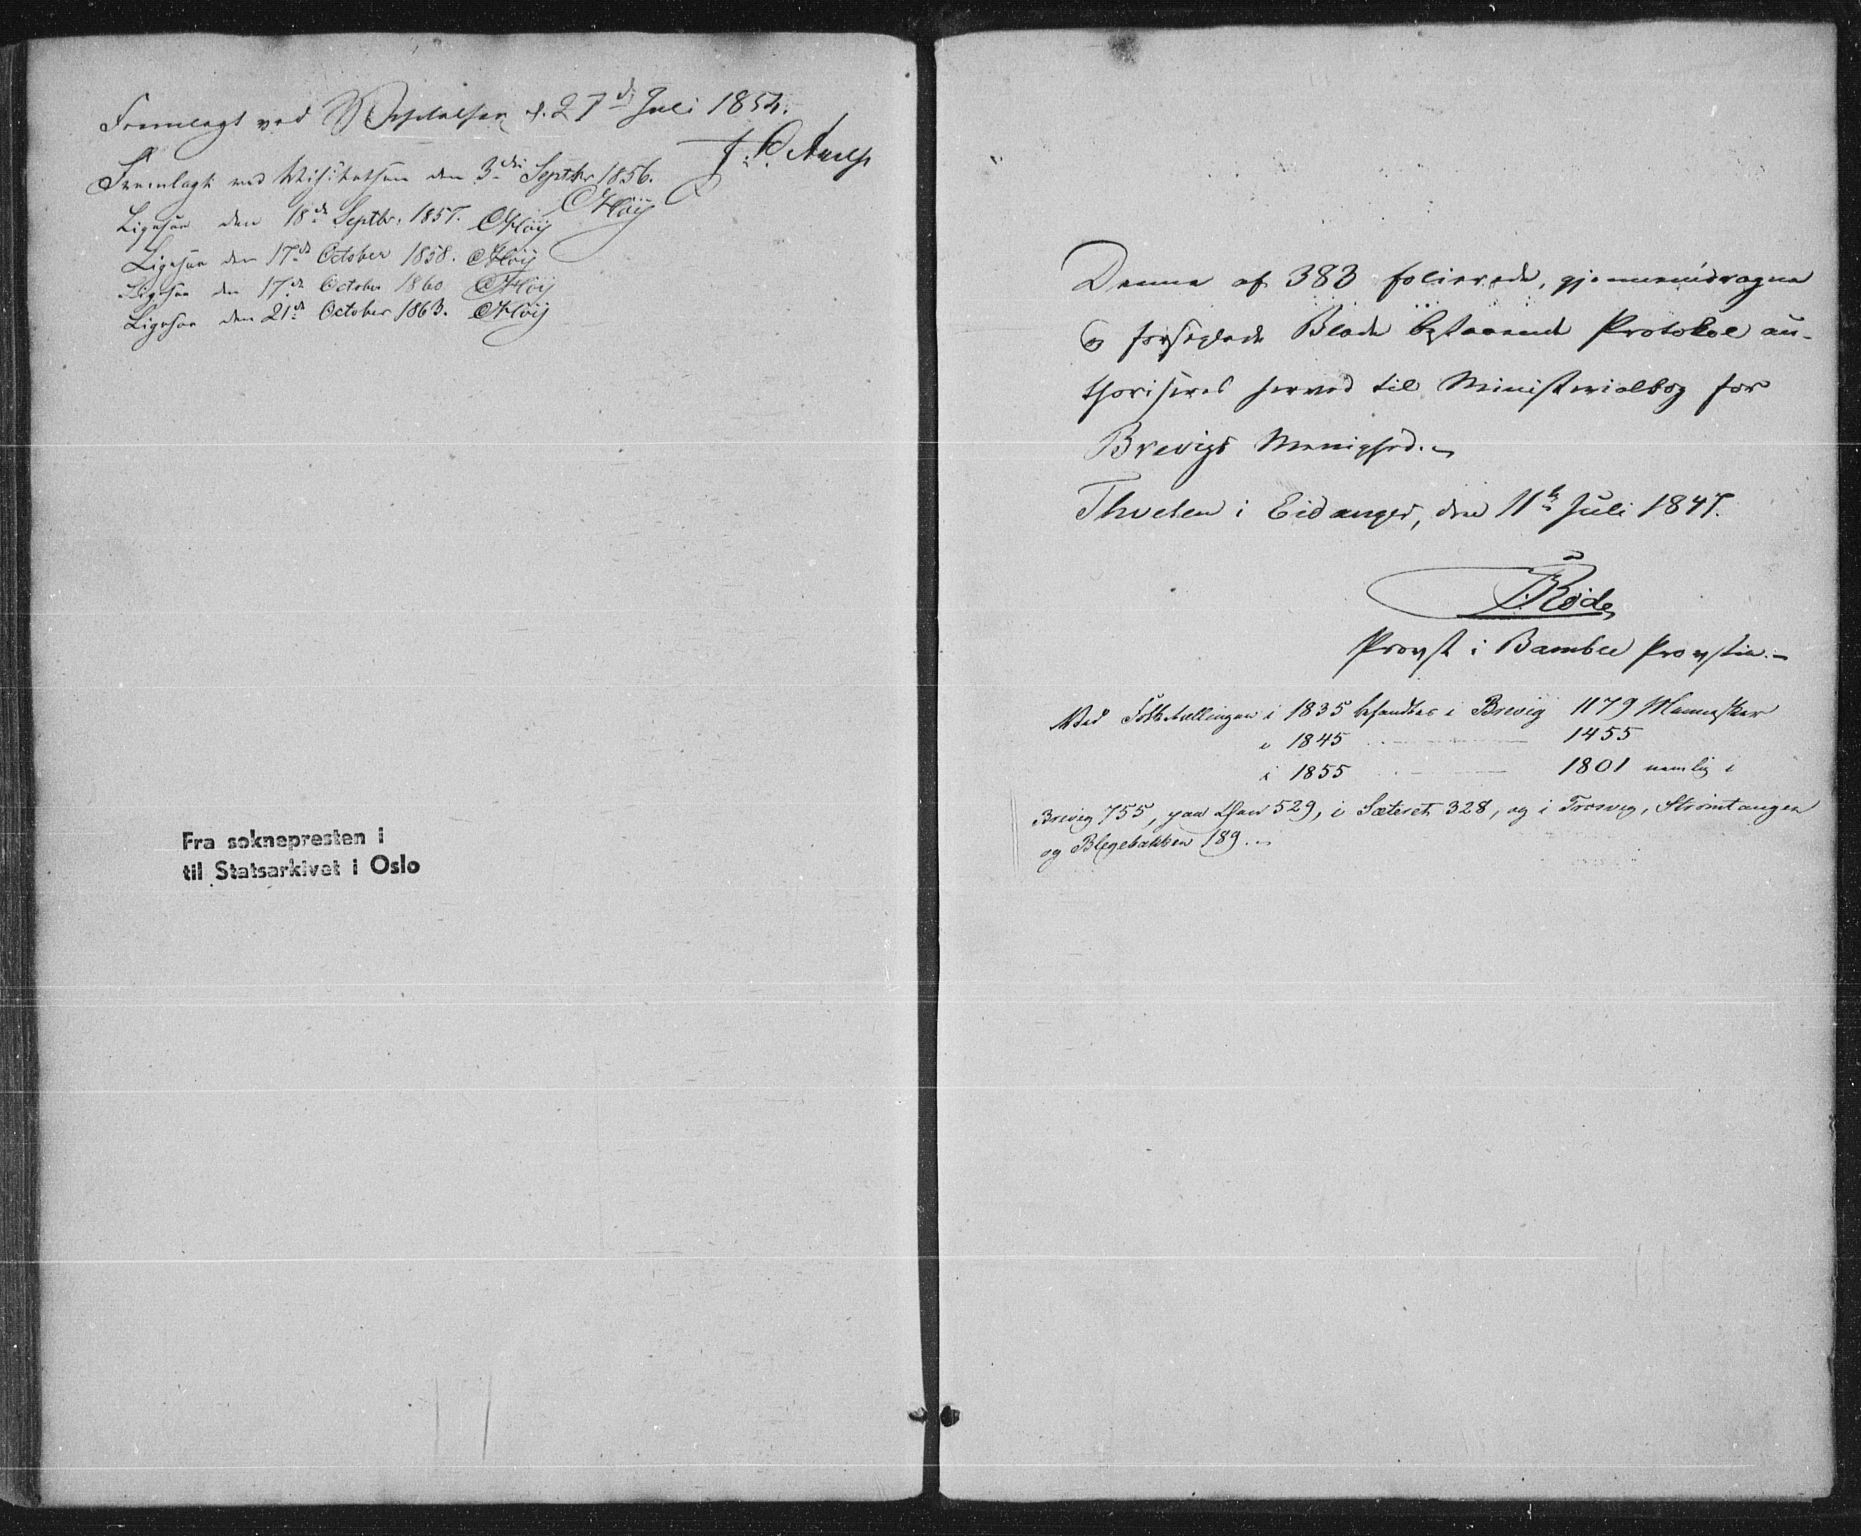 Fremlagt ved Visitatsen d. 27de Juli 1852.
Fremlagt ved Visitatsen den 3die Septbr 1856.
Ligesaa den 18de Septbr. 1857. CHöij
CHöij
Ligesaa den 17de October 1858. CHöij
Ligesaa den 17de October 1860 CHöij
Ligesaa den 21de October 1863. CHöij
Fra soknepresten i
til Statsarkivet i Oslo
Denne af 383 folierede, gjennemdragne
og forseglede Blade bestaaende Protokol au-
thoriseres herved til Ministerialbog for
Brevigs Menighed.
Thveten i Eidanger, den 11te Juli 1847.
Röde
Provst i Bamble Provstie.
Ved Folketællingen i 1835 befandtes i Brevig 1179 Mennesker
i 1845 1455
i 1855 1801 nemlig i
Brevig 755, paa Øen 529, i Sæteret 328, og i Trosvig, Strømtangen
og Blegebakken 189.